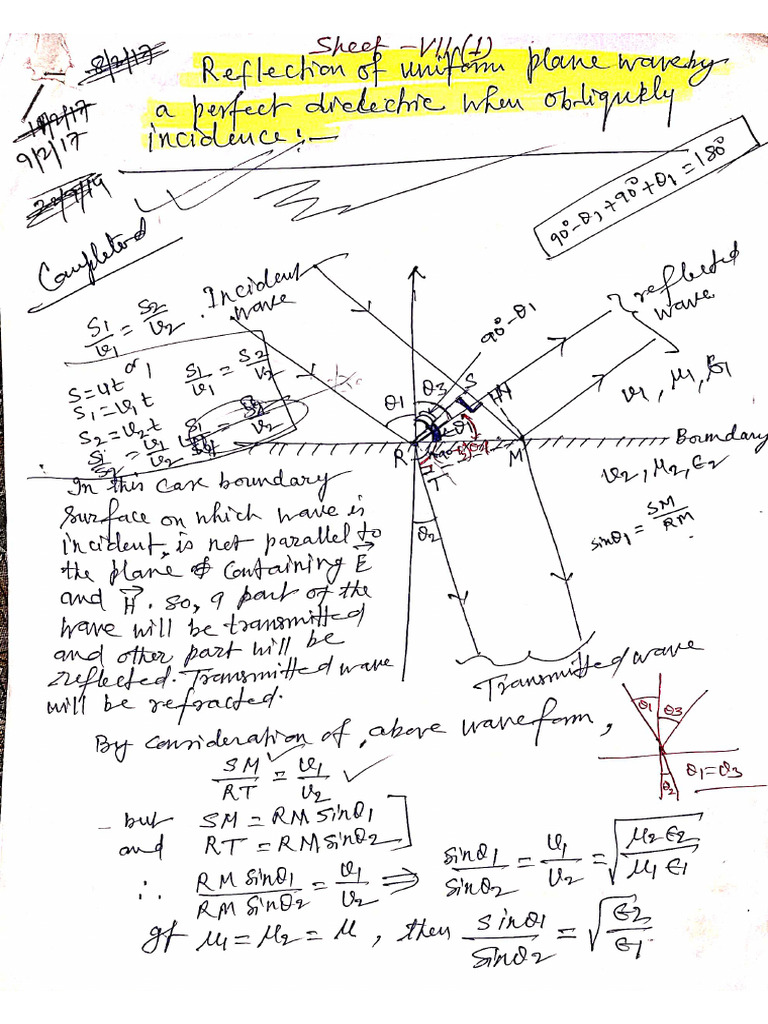 Sheet - VII(1)
8/2/17
Reflection of uniform plane wave by
a perfect dielectric when obliquely
incidence :-
9/2/17
90° - θ3 + 90° + θ1 = 180°
Completed
Incident
wave
90° - θ1
reflected
wave
S1/v1 = S2/v2
or
S = ut
S1/v1 = S2/v2
S1 = v1 t
S2 = v2 t
S1/S2 = v1/v2
θ1
θ3
S
N
θ1
v1, μ1, ε1
R
M
Boundary
T
v2, μ2, ε2
θ2
sinθ1 = SM/RM
In this case boundary
surface on which wave is
incident, is not parallel to
the plane of containing E
and H. So, a part of the
wave will be transmitted
and other part will be
reflected. Transmitted wave
will be refracted.
Transmitted wave
By consideration of, above waveform,
θ1
θ3
θ2
θ1 = θ3
SM/RT = v1/v2
but SM = RM sinθ1
and RT = RM sinθ2
∴ RM sinθ1/RM sinθ2 = v1/v2 ⇒ sinθ1/sinθ2 = v1/v2 = √(μ2 ε2/μ1 ε1)
If μ1 = μ2 = μ, then sinθ1/sinθ2 = √(ε2/ε1)